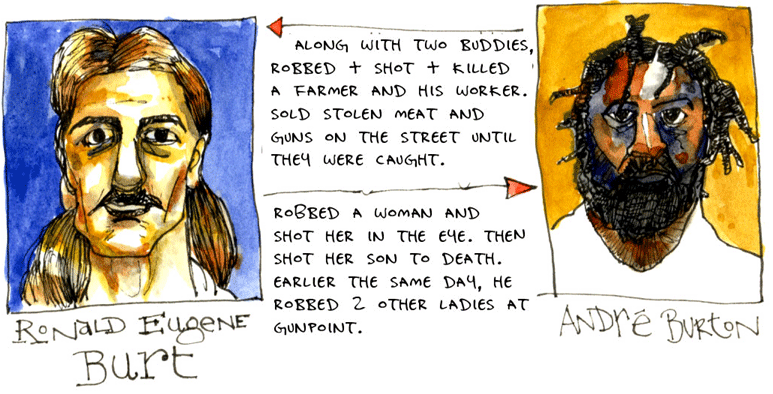 ALONG WITH TWO BUDDIES,
ROBBED + SHOT + KILLED
A FARMER AND HIS WORKER.
SOLD STOLEN MEAT AND
GUNS ON THE STREET UNTIL
THEY WERE CAUGHT.
ROBBED A WOMAN AND
SHOT HER IN THE EYE. THEN
SHOT HER SON TO DEATH.
EARLIER THE SAME DAY, HE
ROBBED 2 OTHER LADIES AT
GUNPOINT.
RONALD EUGENE
Burt
ANDrÉ BURTON